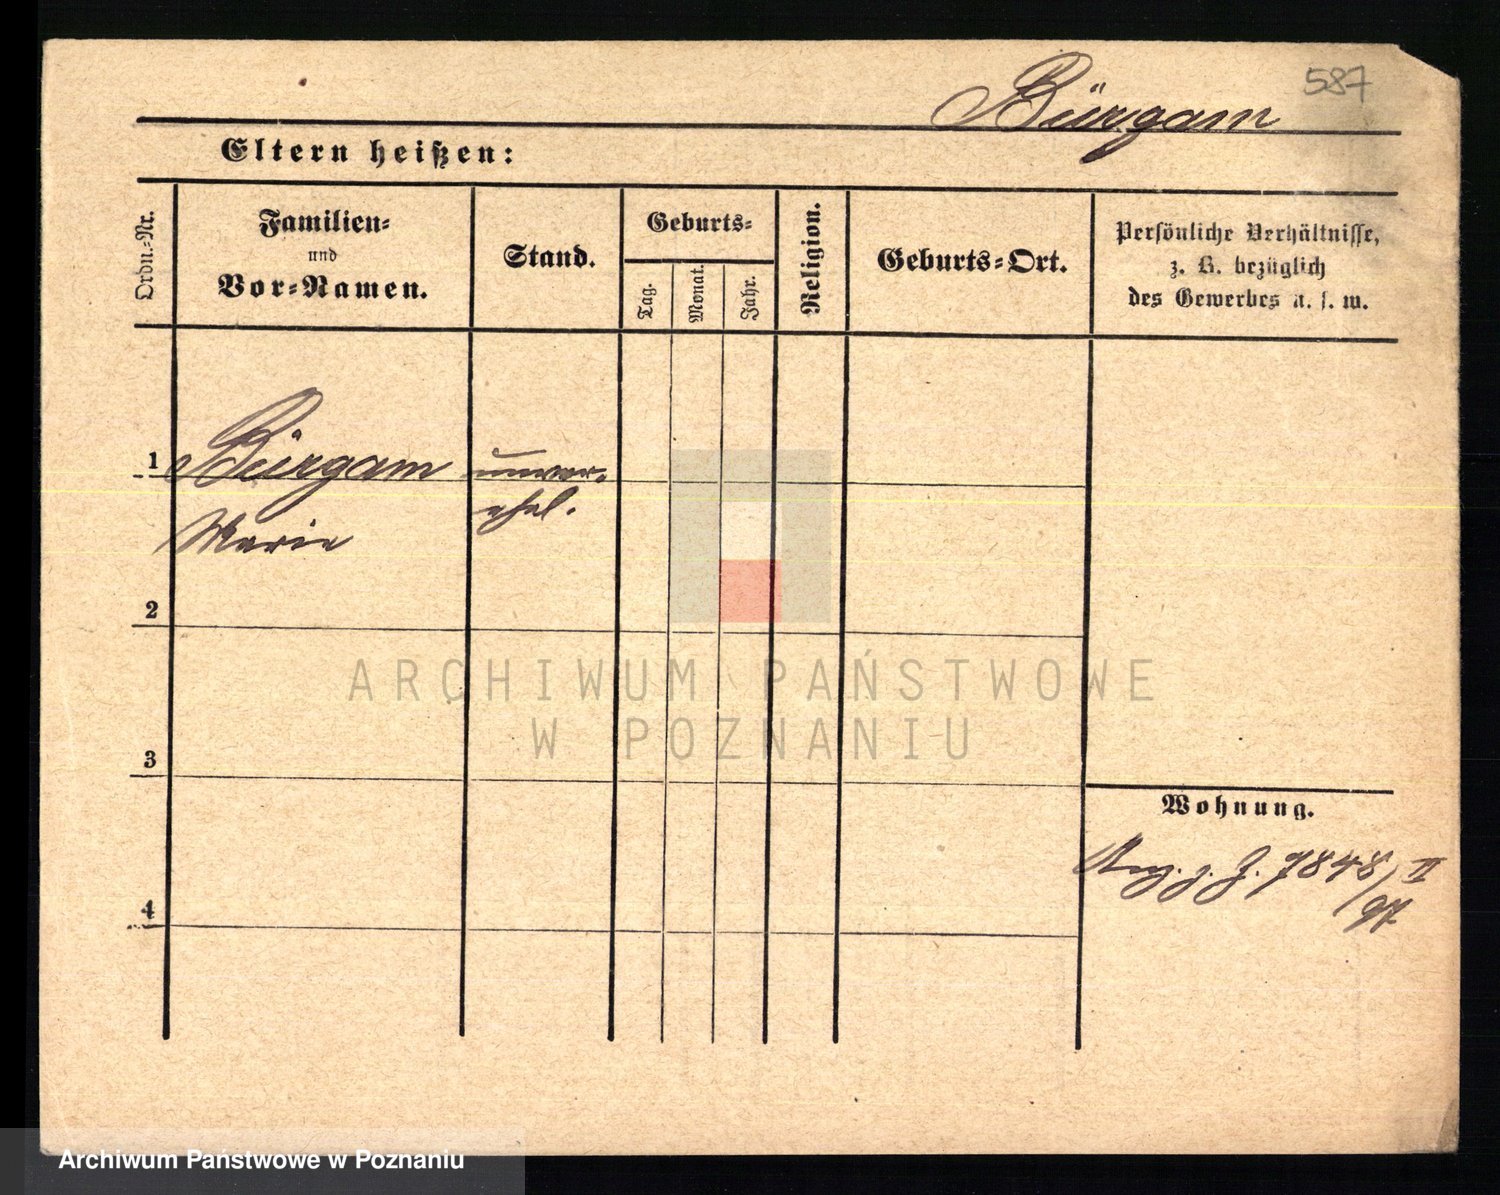 587
Bürgam
Eltern heißen:
Ordn.=Nr.
Familien=
und
Vor=Namen.
Stand.
Geburts=
Tag.
Monat.
Jahr.
Religion.
Geburts=Ort.
Persönliche Verhältnisse,
z. B. bezüglich
des Gewerbes u. s. w.
1
Bürgam
Marie
unver=
ehel.
2
3
4
Wohnung.
7848/II
97
ARCHIWUM PAŃSTWOWE
W POZNANIU
Archiwum Państwowe w Poznaniu